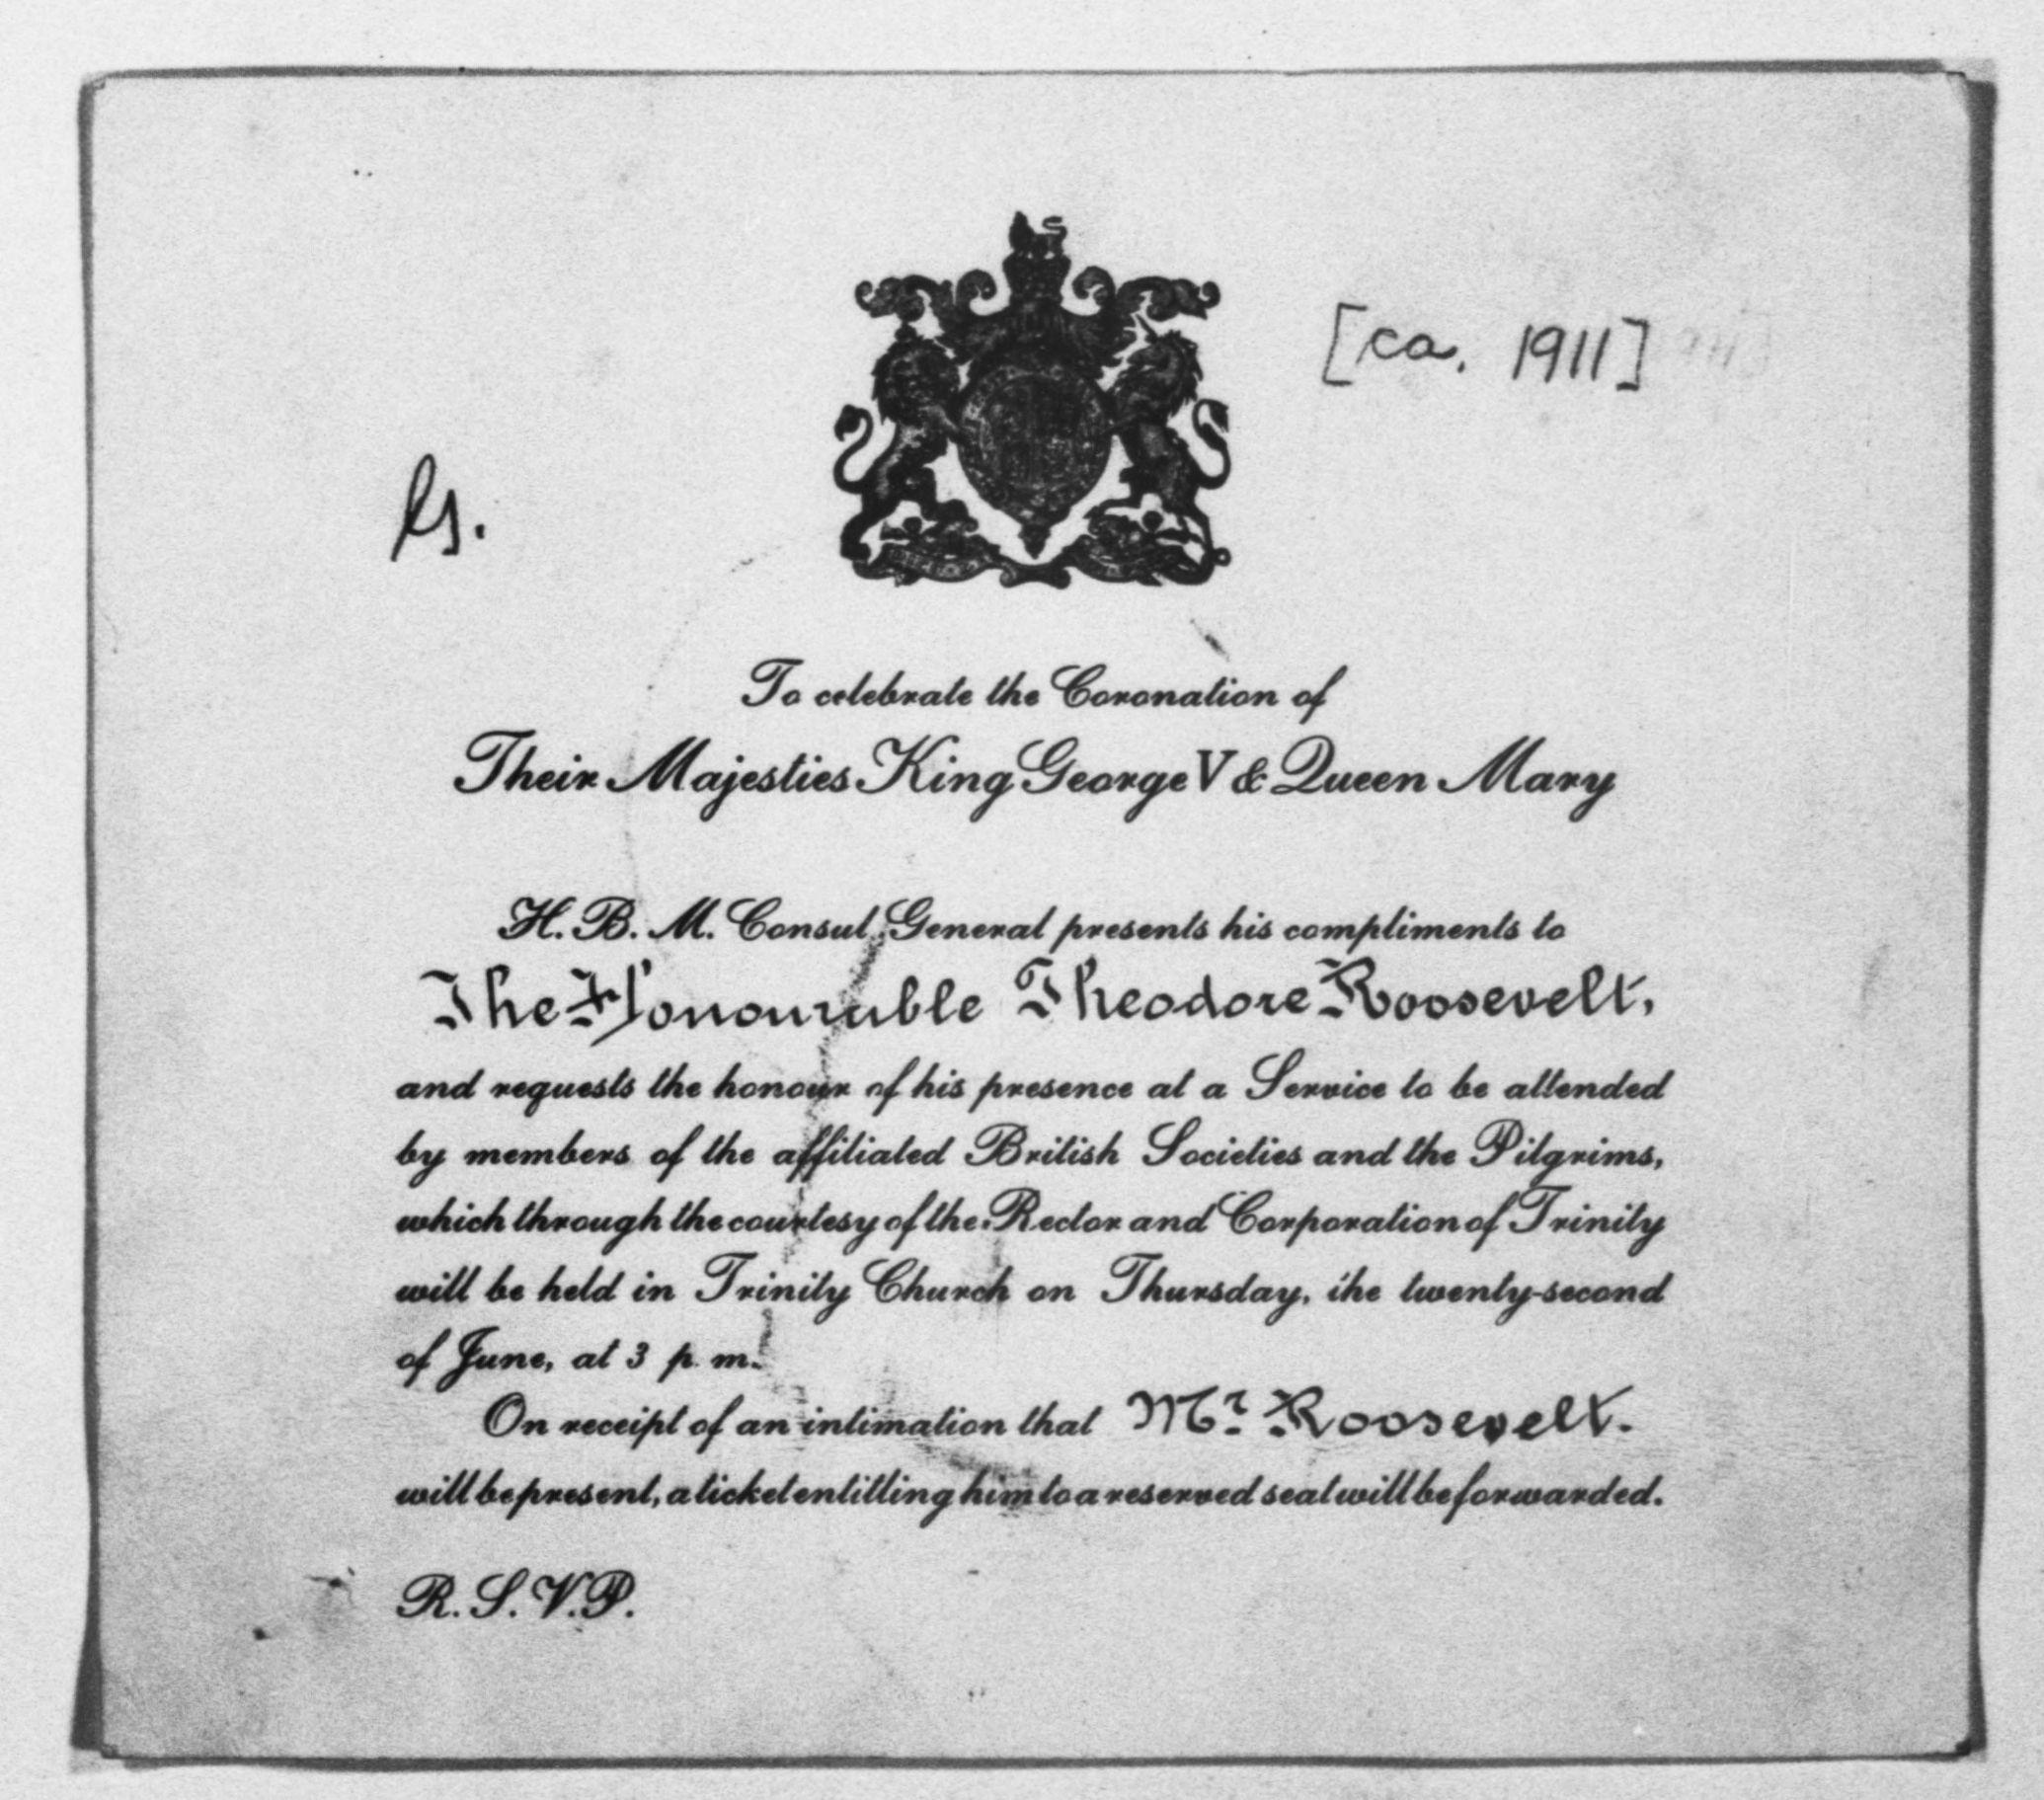 [ca. 1911]
To celebrate the Coronation of
Their Majesties King George V & Queen Mary
H. B. M. Consul General presents his compliments to
The Honourable Theodore Roosevelt,
and requests the honour of his presence at a Service to be attended
by members of the affiliated British Societies and the Pilgrims,
which through the courtesy of the Rector and Corporation of Trinity
will be held in Trinity Church on Thursday, the twenty-second
of June, at 3 p. m.
On receipt of an intimation that Mr. Roosevelt.
will be present, a ticket entitling him to a reserved seat will be forwarded.
R. S. V. P.